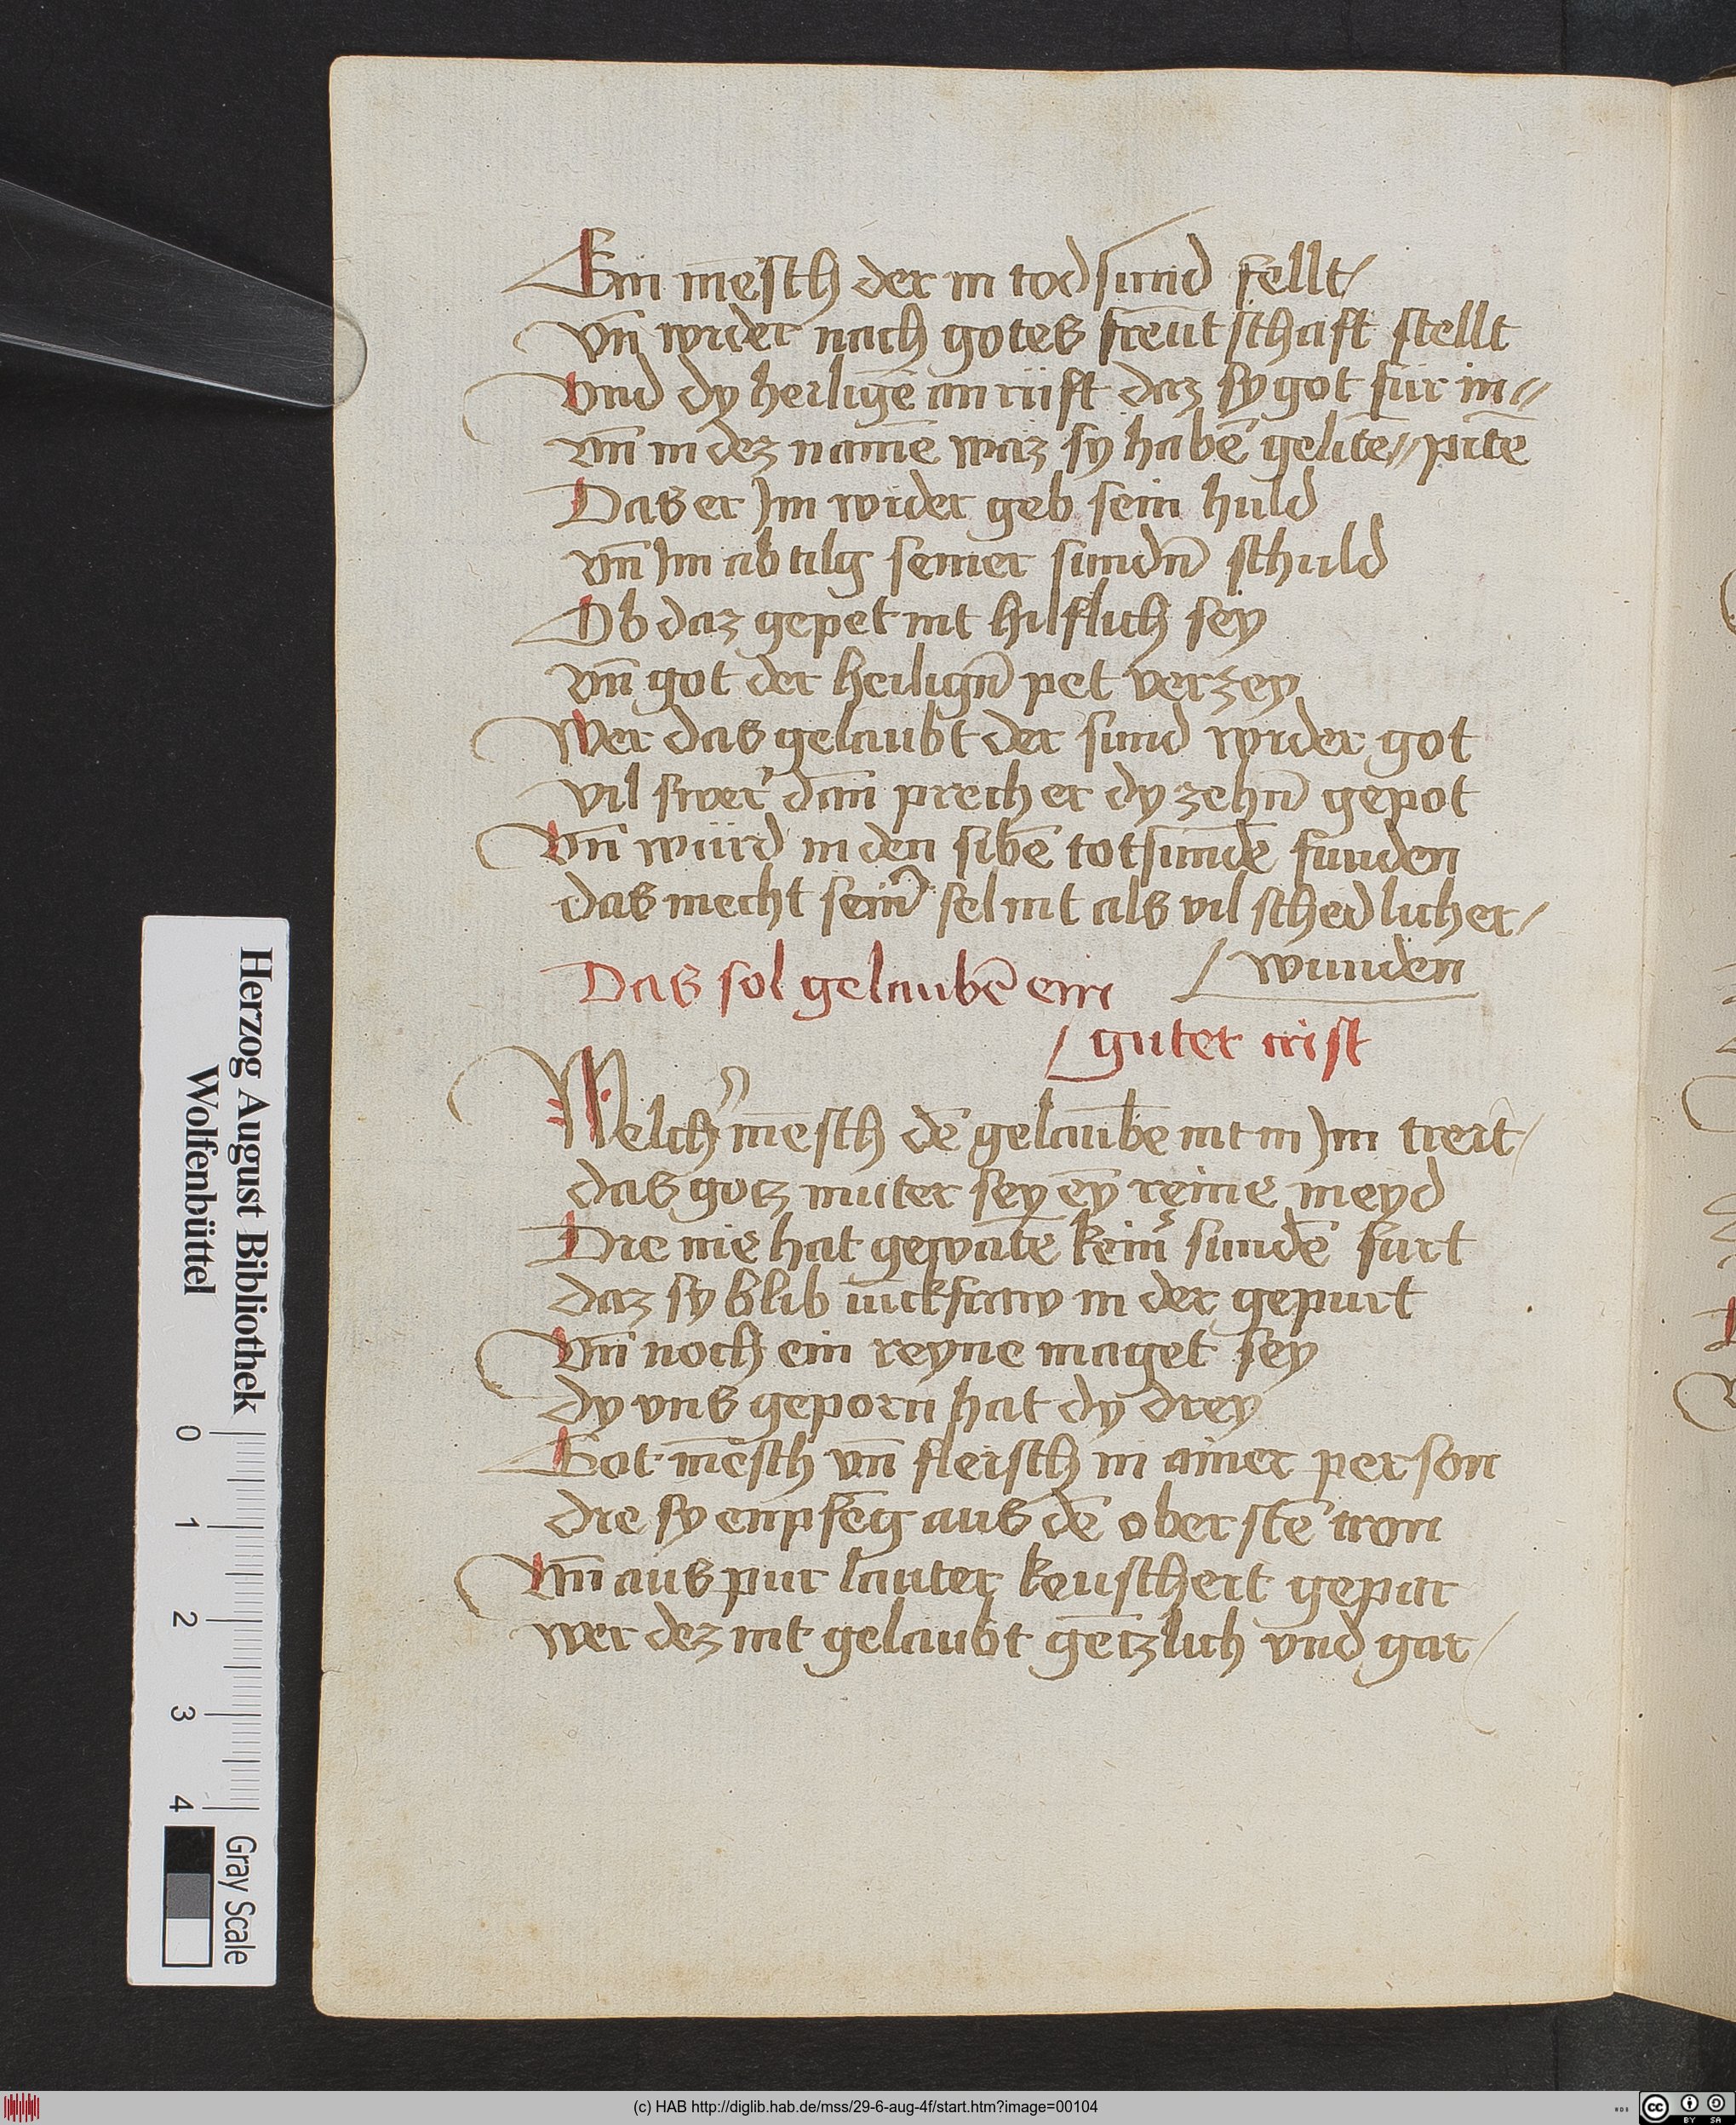 Ein mēsch der in tod sund fellt
vn̄ wider nach gotes freūtschaft stellt
Vnd dy heiligē an rüft daz sy got für in
vn̄ in dez namē waz sy habē gelitē pitē
Das er Im wider geb sein huld
vn̄ Im ab tilg seiner sundn̄ schuld
Ob daz gepet nit hilflich sey
vn̄ got der heilign̄ pet verzey
Wer das gelaubt der sund wider got
vil swer' dan̄ prech er dy zehn̄ gepot
Vn̄ würd in den sibē totsundē funden
das mecht sein̄ sel nit als vil schedlicher
wunden
Das sol gelaubē ein
guter crist
Welch' mēsch dē gelaubē nit in Im treit
das gotz muter sey ey̅ reine meyd
Die nie hat gewatē kein' sundē furt
daz sy blib iūckfraw in der gepurt
Vn̄ noch ein reyne maget sey
dy vns geporn hat dy drey
Got mēsch vn̄ fleisch in ainer person
die sy enpfēg aus dē oberstē tron
Vn̄ aus pur lauter keuscheit gepar
wer dez nit gelaubt gētzlich vnd gar
Herzog August Bibliothek
Wolfenbüttel
0 1 2 3 4
Gray Scale
(c) HAB http://diglib.hab.de/mss/29-6-aug-4f/start.htm?image=00104
cc BY SA